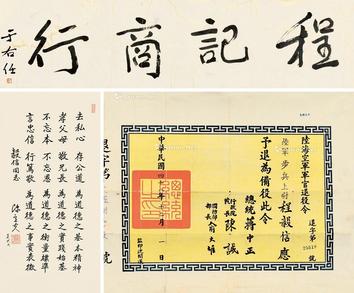 程記商行
于右任
去私心 存公道 為道德之基本精神
孝父母 敬兄長 為道德之實踐始基
不忘本 不忘恩 為道德之衡量標準
言忠信 行篤敬 為道德之事實表徵
毅信同志
陸海空軍軍官退役令
退字第 25519 號
陸軍步兵上尉程毅信應
予退為備役此令
總統蔣中正
行政院院長陳誠
國防部部長俞大維
中華民國四十年 月一日